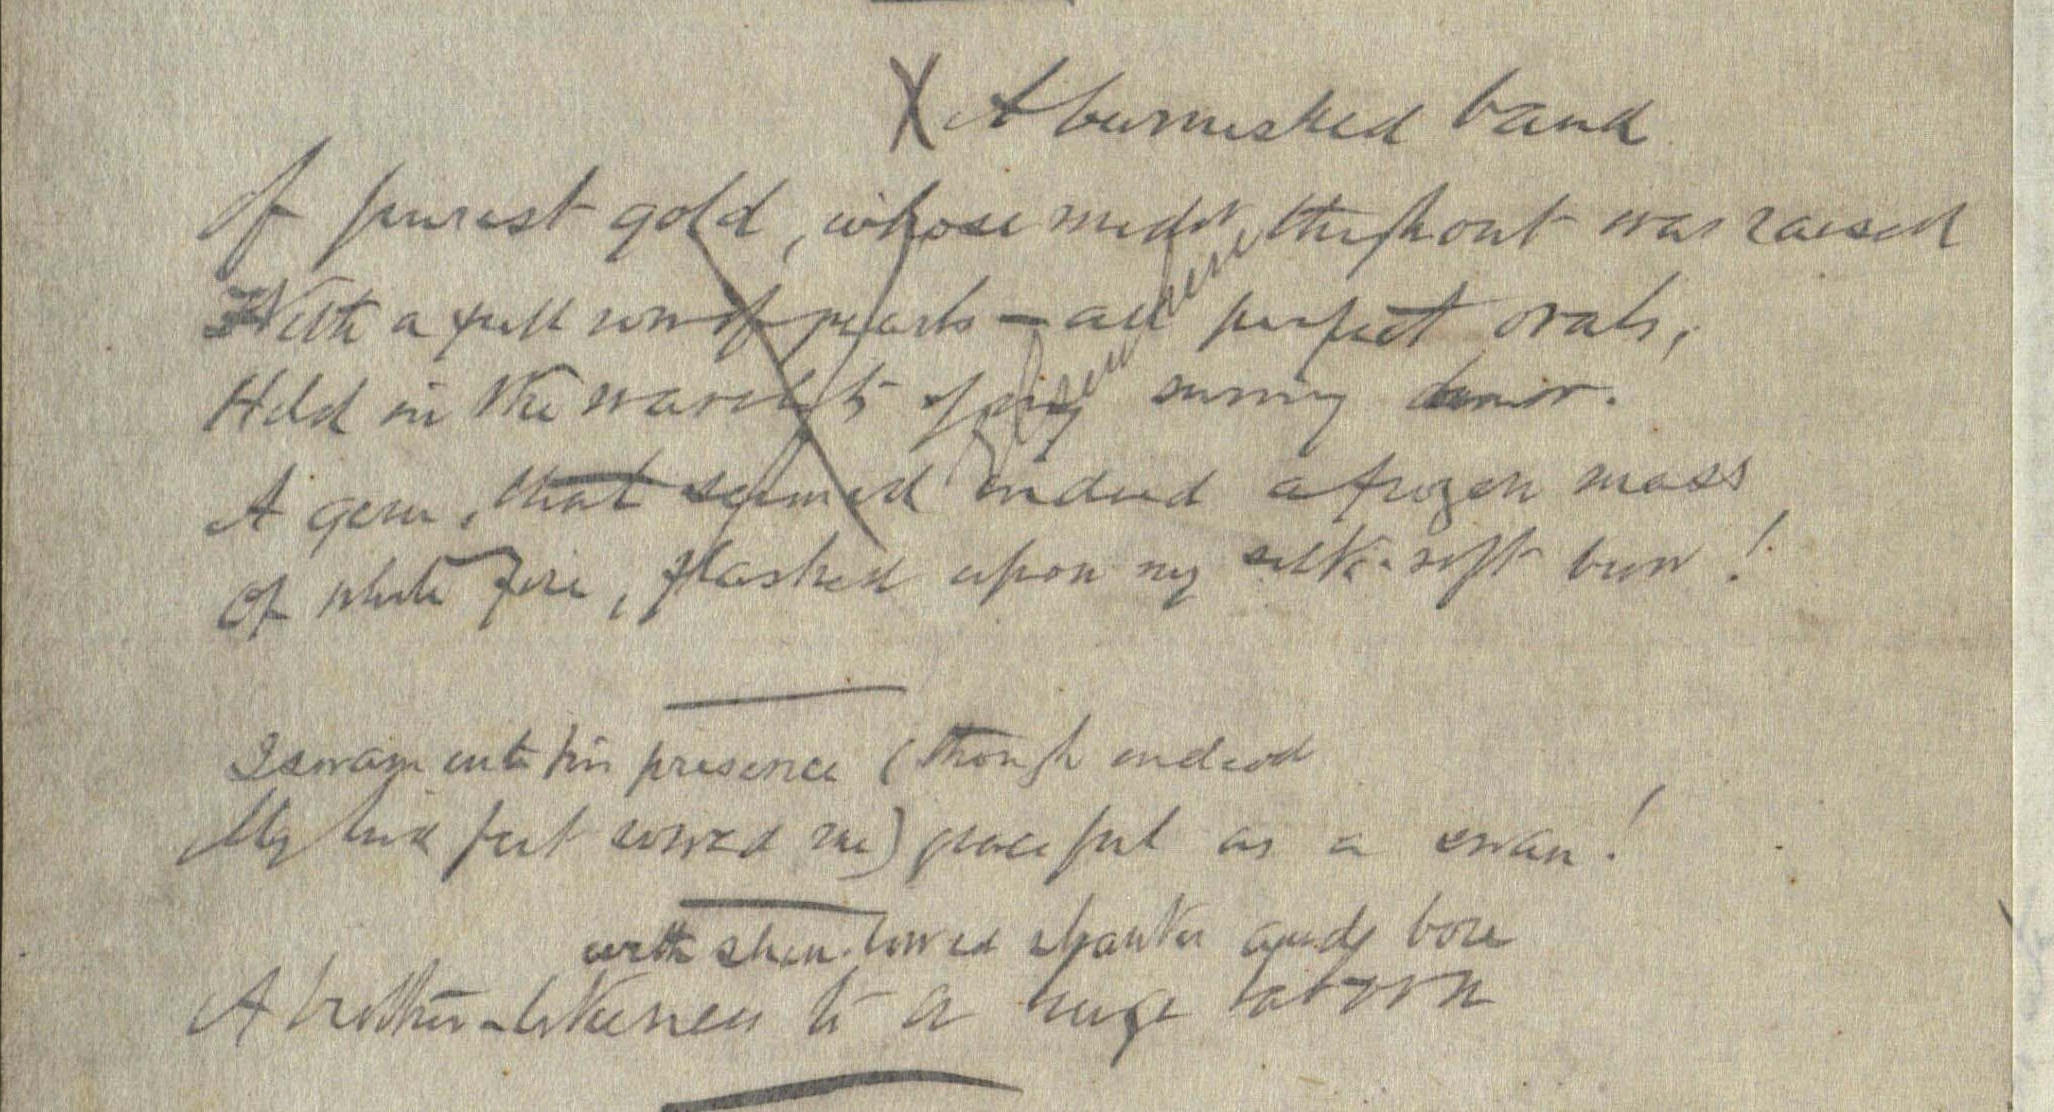 X A burnished band
Of purest gold, whose midst, thr'hout was raised
With a full row of pearls — all perfect ovals,
Held in the of my sunny
A gem, that seemed indeed a frozen mass
Of white fire, flashed upon my silk-soft brow!
I swam into his presence (though indeed
My feet me) graceful as a swan!
with bore
A brother-likeness to a huge baboon